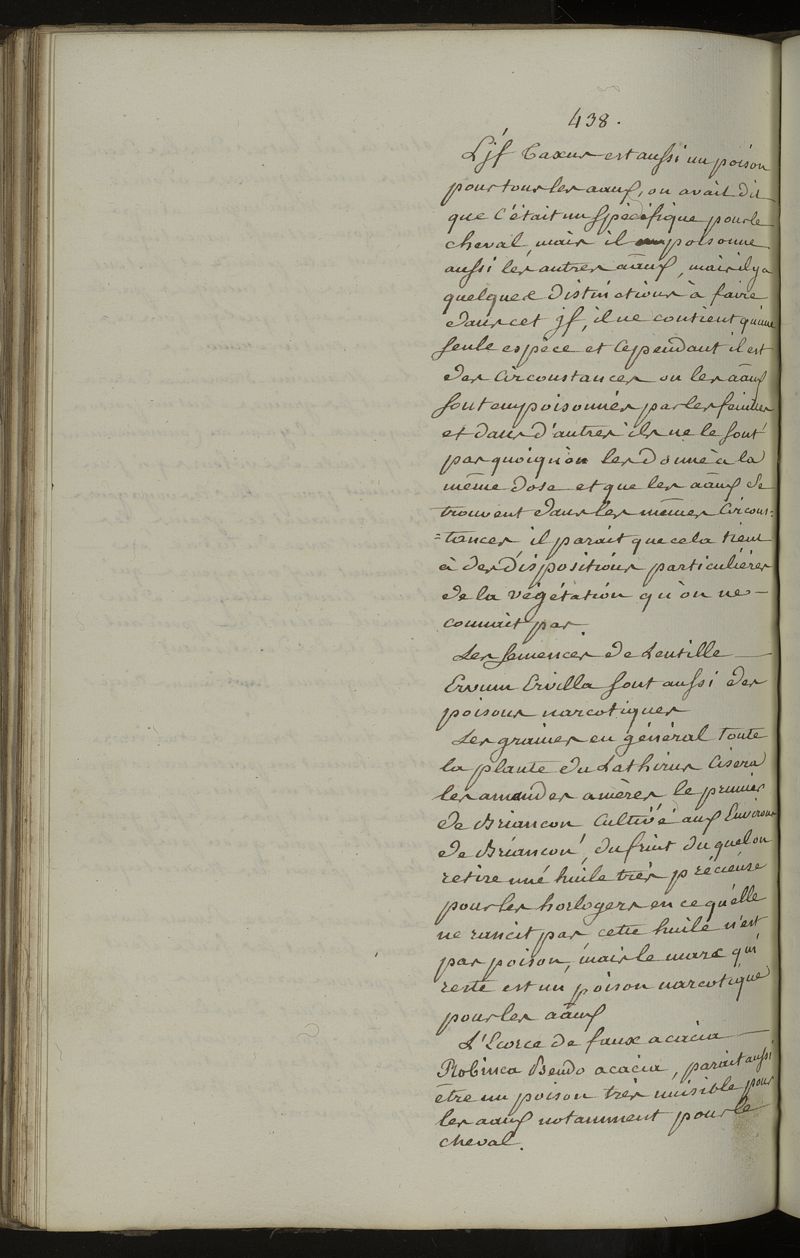 438.
L'if Taxus est aussi un poison
pour tous les aaux, on avait dit
que c'était un spécifique pour le
cheval, mais il empoisonne
aussi les autres aāux, mais il y a
quelques distinctions à faire
dans cet jf, il ne contient qu'une
seule espèce et cependant il est
des circonstances ou les aāux
sont empoisonnés par les feuilles
et dans d'autres ils ne le sont
pas quoiqu'on les donne à la
même dose et que les aāux se
trouvent dans les mêmes circons=
=tances, il parait que cela tient
à des dispositions particulières
de la végétation qu'on ne —
connait pas.
Les semences de Lentille —
Ervum Ervilla sont aussi des
poisons narcotiques
Les graines en général toute
la plante du Lathirus Cisera
les amandes amères, le prunier
de Briancon cultivé aux Environs
de Briancon, du fruit du quel on
retire une huile très précieuse
pour les horlogers en ce qu'elle
ne rancit pas cette huile n'est
pas poison, mais le marc qui
reste est un poison narcotique
pour les aāux
L'Ecorce de faux acacia —
Robinea Pseudo acacia, parait aussi
être un poison très nuisible pour
les aaux notamment pour le
cheval.